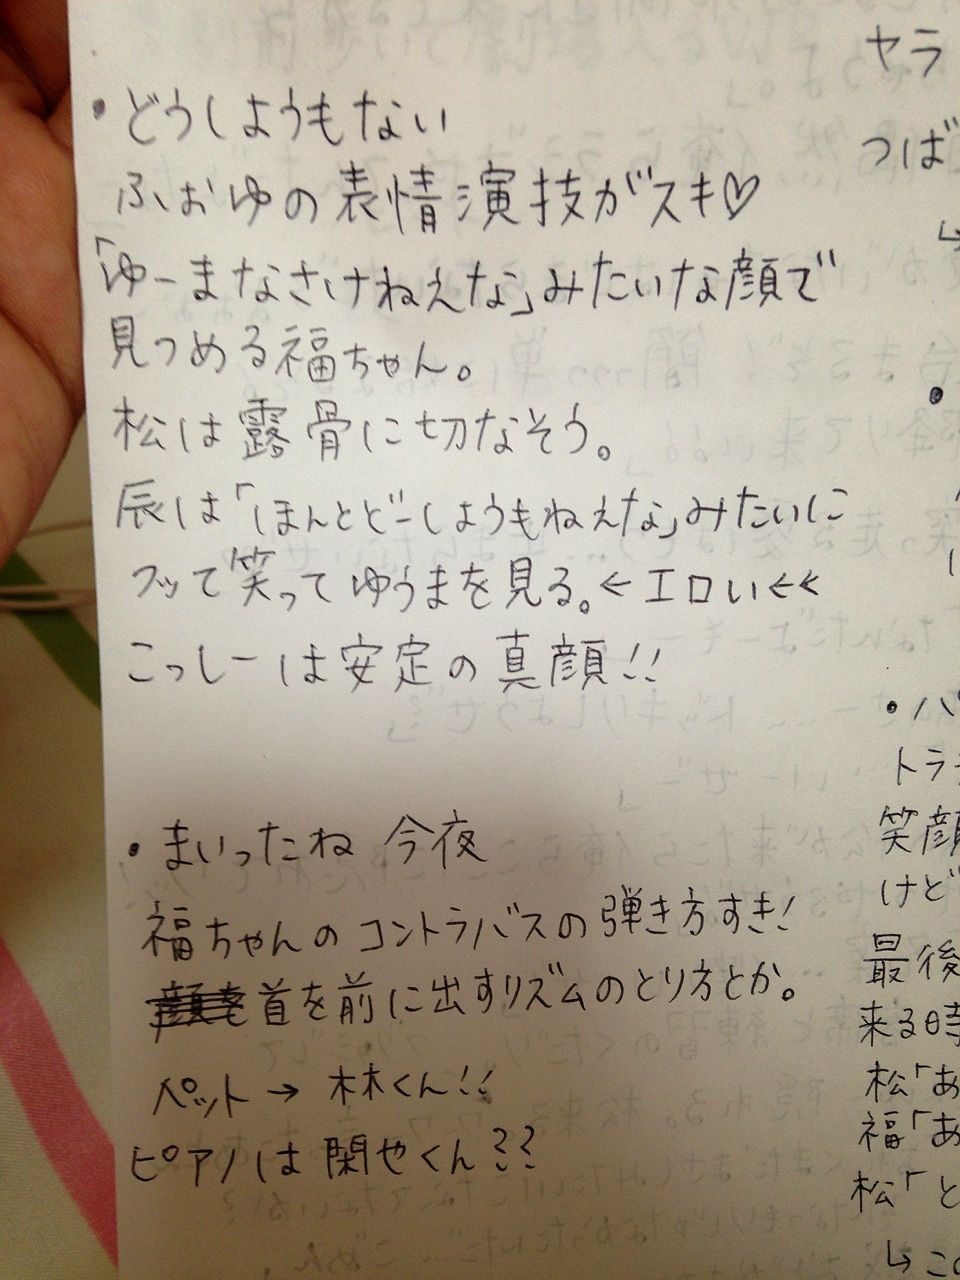 ・どうしようもない
ふぉゆの表情演技がスキ♡
「ゆーまなさけねえな」みたいな顔で
見つめる福ちゃん。
松は露骨に切なそう。
辰は「ほんとどーしようもねえな」みたいに
フッて笑ってゆうまを見る。←エロい←←
こっしーは安定の真顔!!
・まいったね 今夜
福ちゃんのコントラバスの弾き方すき!
首を前に出すリズムのとり方とか。
ペット→林くん!!
ピアノは閑也くん??
ヤラ
つば
↳
・
・パ
トラ
笑顔
けど
最後
来る時
松「あ
福「あ
松「と
↳この